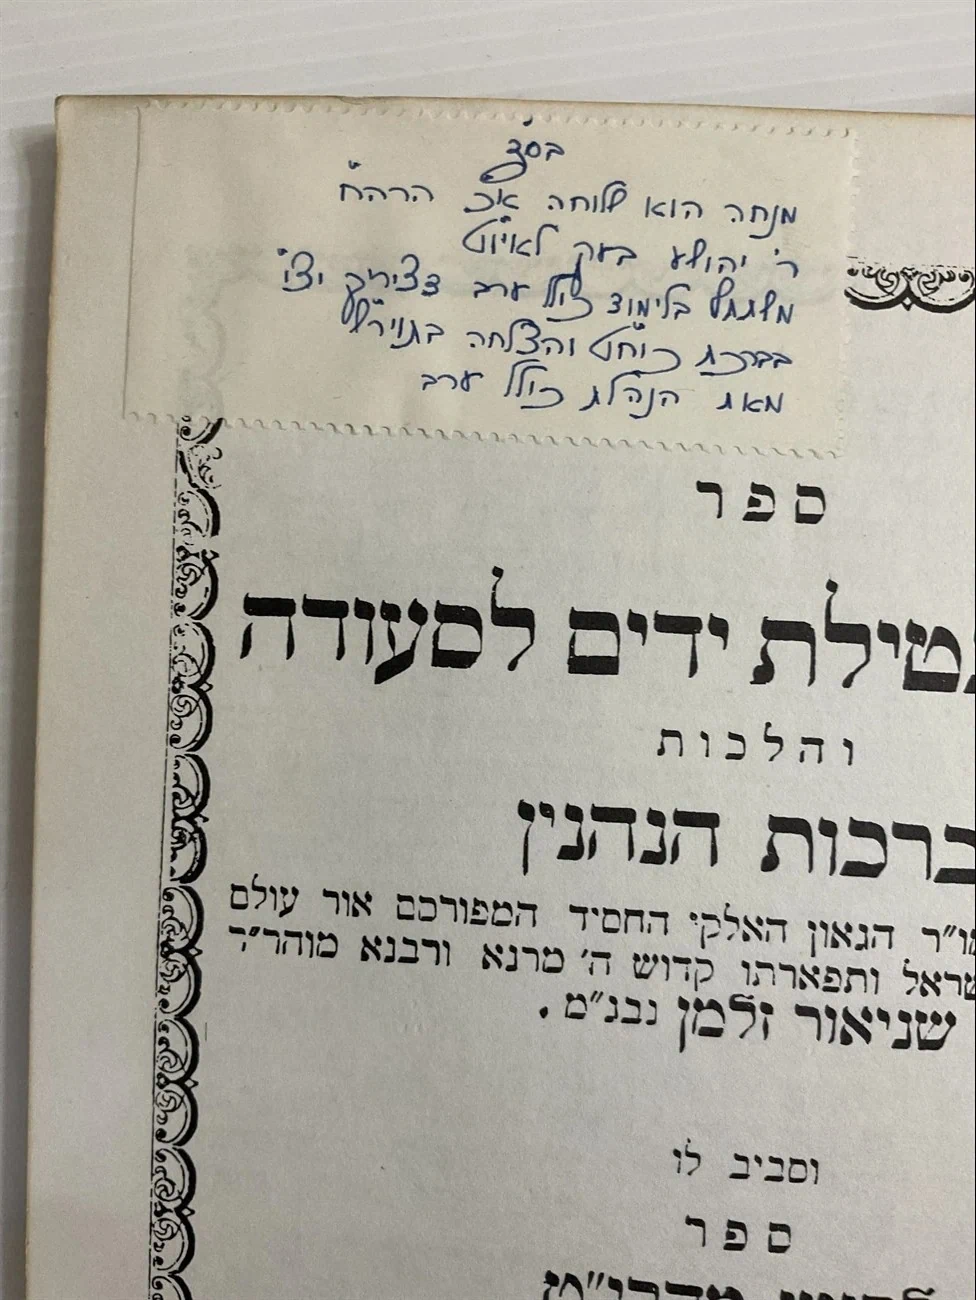 בסד
מנחה הוא שלוחה אל הרה"ח
ר' יהושע
בלימוד כולל ערב
בברכת והצלחה
מאת הנהלת כולל ערב
ספר
נטילת ידים לסעודה
והלכות
ברכות הנהנין
הגאון האלקי החסיד המפורסם אור עולם
ותפארתו קדוש ה' מרנא ורבנא מוהר"ר
שניאור זלמן נבג"מ.
וסביב לו
ספר